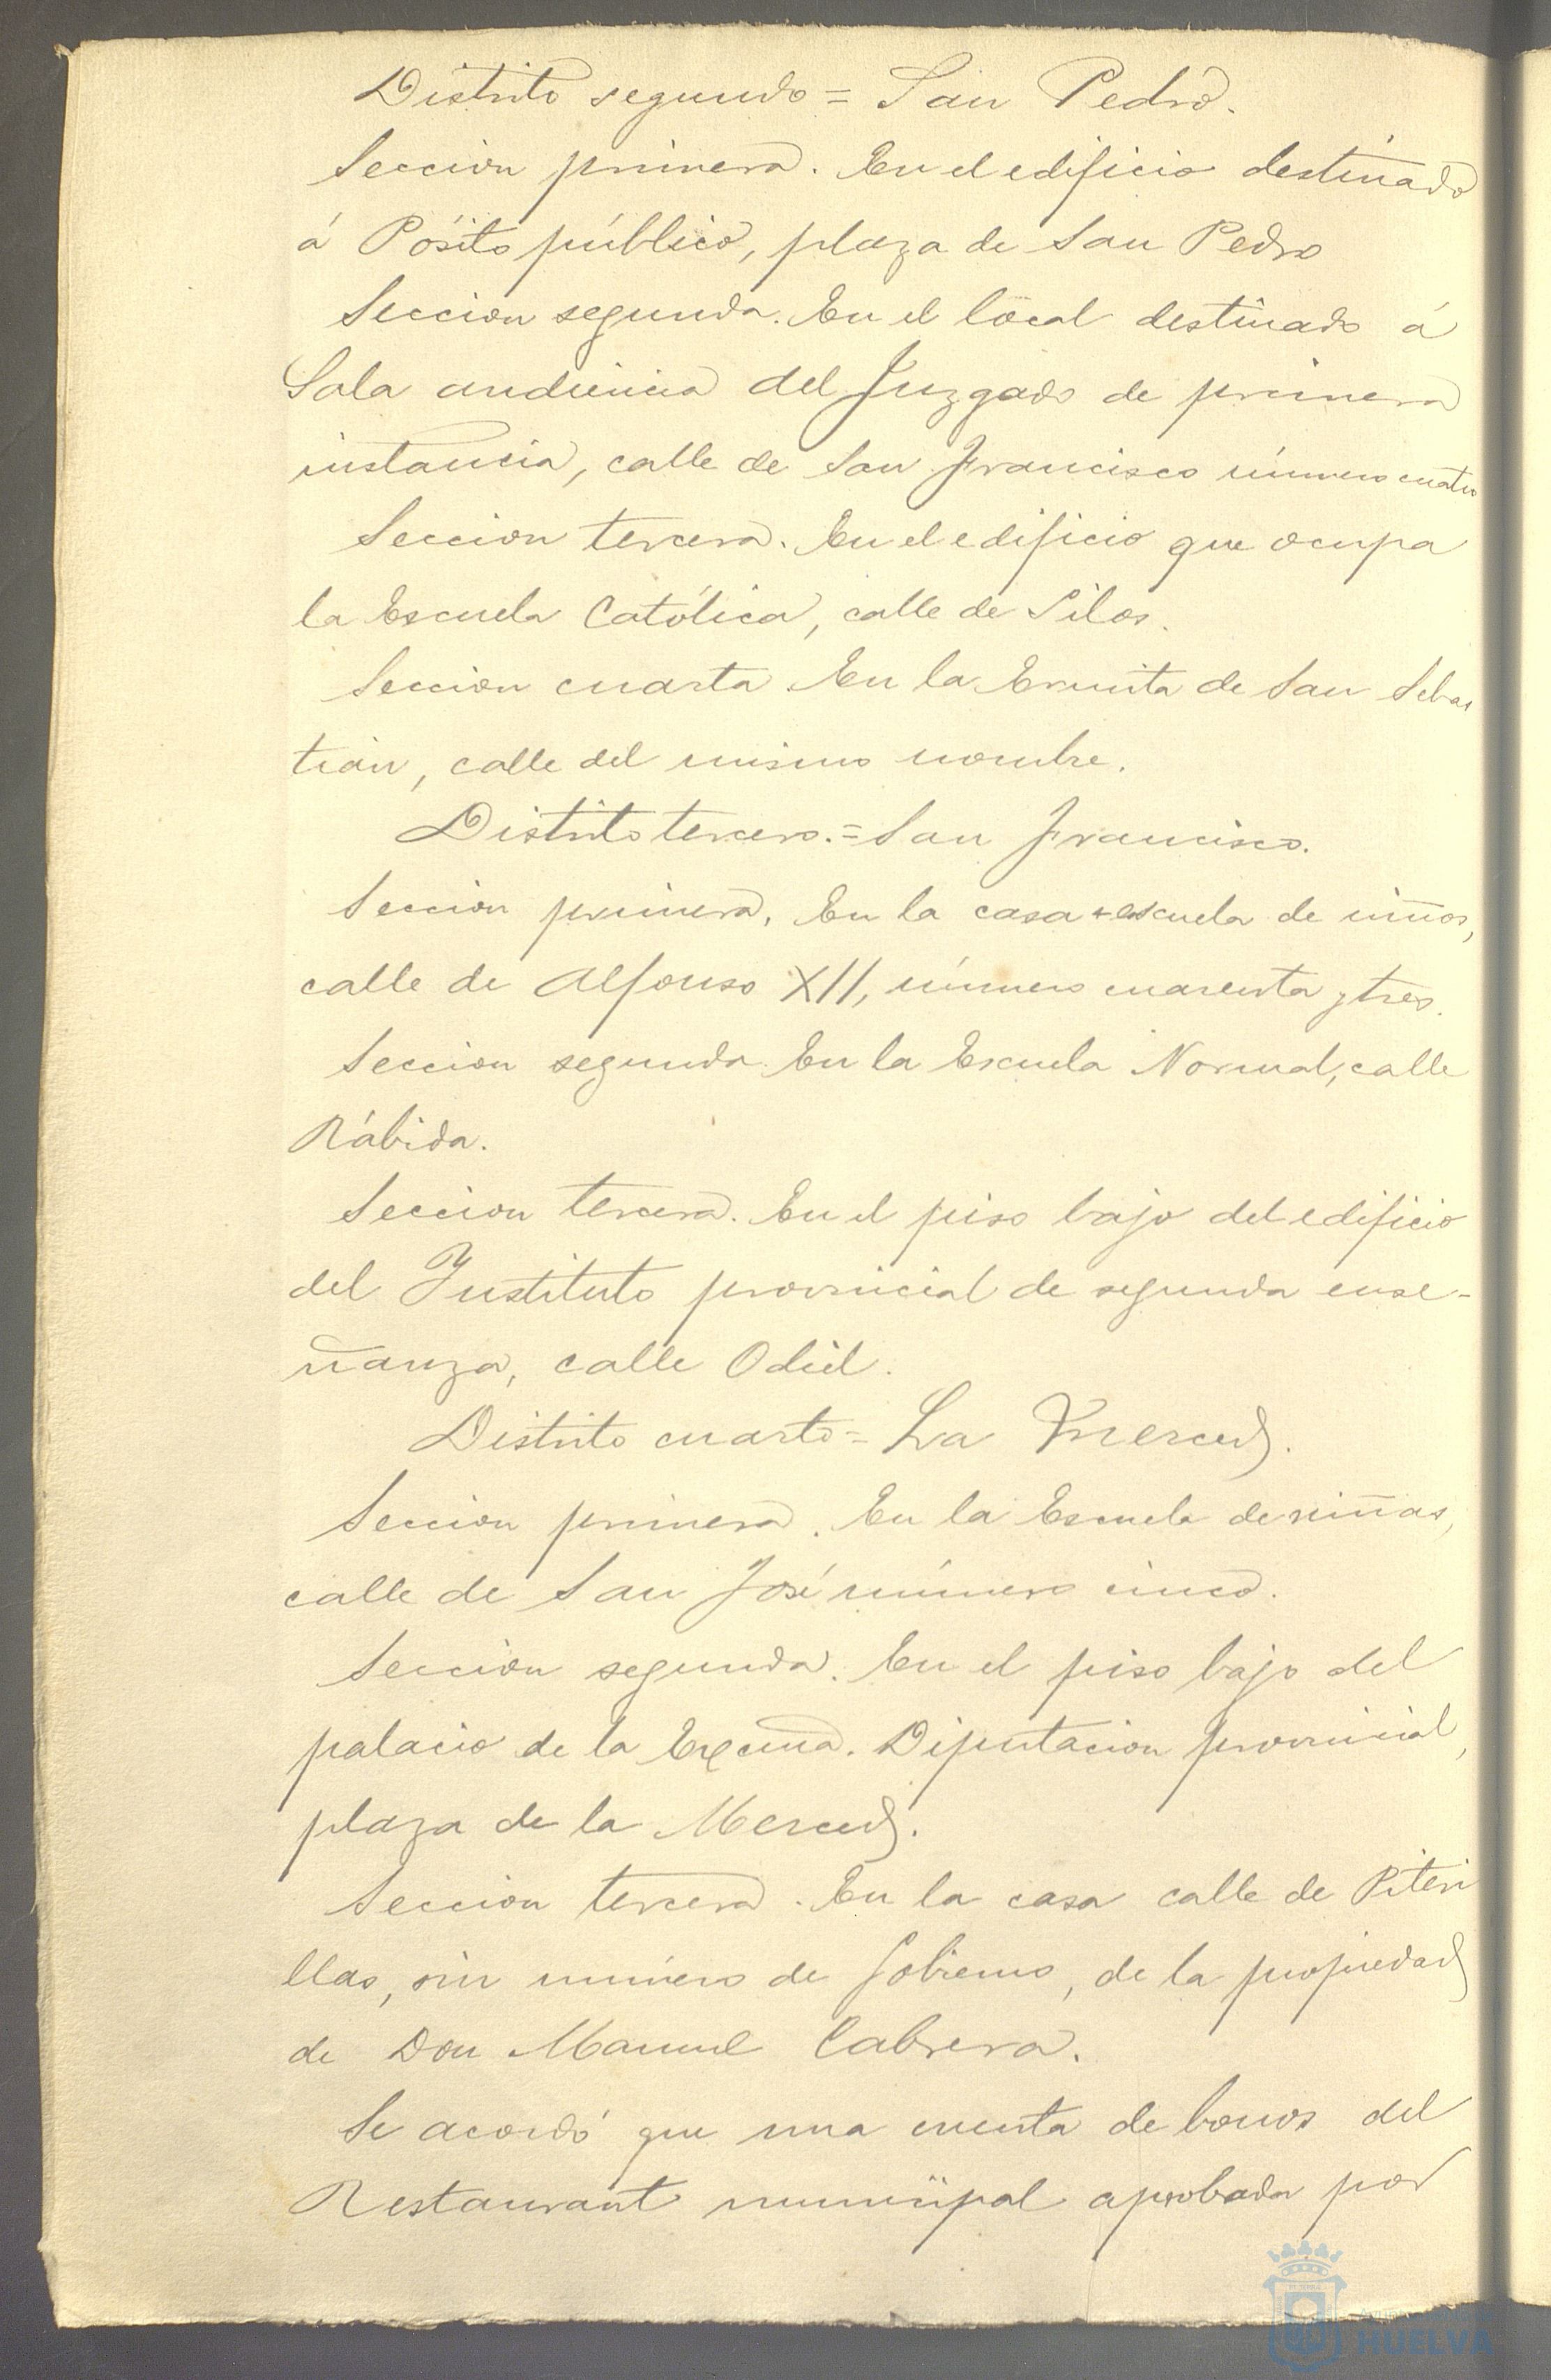 Distrito segundo = San Pedro.
Seccion primera. En el edificio destinado
á Pósito público, plaza de San Pedro
Seccion segunda. En el local destinado á
Sala audiencia del Juzgado de primera
instancia, calle de San Francisco número cuatro
Seccion tercera. En el edificio que ocupa
la Escuela Católica, calle de Silos.
Seccion cuarta. En la Ermita de San Sebas
tián, calle del mismo nombre.
Distrito tercero. = San Francisco.
Seccion primera. En la casa escuela de niños,
calle de Alfonso XII, número cuarenta y tres.
Seccion segunda. En la Escuela Normal, calle
Rábida.
Seccion tercera. En el piso bajo del edificio
del Instituto provincial de segunda ense-
ñanza, calle Odiel.
Distrito cuarto = La Merced.
Seccion primera. En la Escuela de niñas,
calle de San José número cinco.
Seccion segunda. En el piso bajo del
palacio de la Excma. Diputacion provincial,
plaza de la Merced.
Seccion tercera. En la casa calle de Piteri
llas, sin número de gobierno, de la propiedad
de Don Manuel Cabrera.
Se acordó que una cuenta de bonos del
Restaurant municipal aprobada por
HUELVA